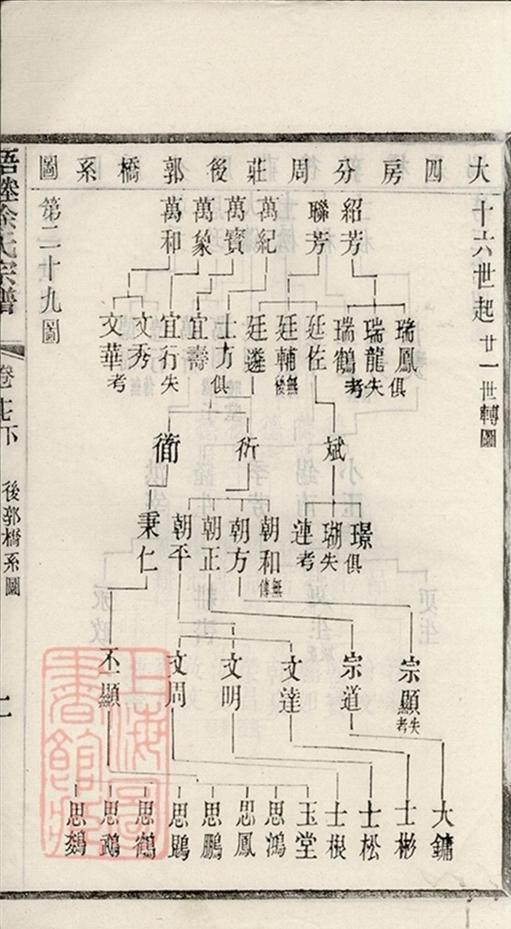 大四房分周莊後郭橋系圖
十六世起廿一世轉圖
紹芳
聯芳
萬紀
萬實
萬象
萬和
第二十九圖
瑞鳳俱
瑞龍失
瑞鶴考
廷佐
廷輔無後
廷遴
士方俱
宜壽
宜行失
文秀
文華考
斌
衍
衛
璟俱
瑚失
蓮考
朝和無傳
朝方
朝正
朝平
秉仁
宗顯失考
宗道
文達
文明
文周
丕顯
大鏞
士彬
士松
士根
玉堂
思鴻
思鳳
思鵬
思鶚
思鶴
思
思
宗譜
卷七下
後郭橋系圖
上海圖書館藏